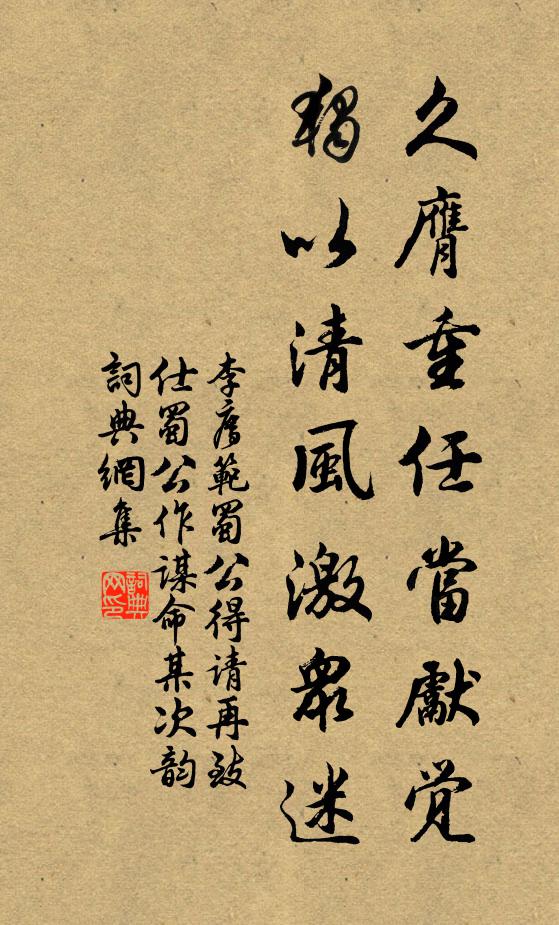 久膺重任當獻觉
獨以清風激眾迷
李廌範蜀公得请再致
仕蜀公作謀命某次韵
詞典網集
詞典网印